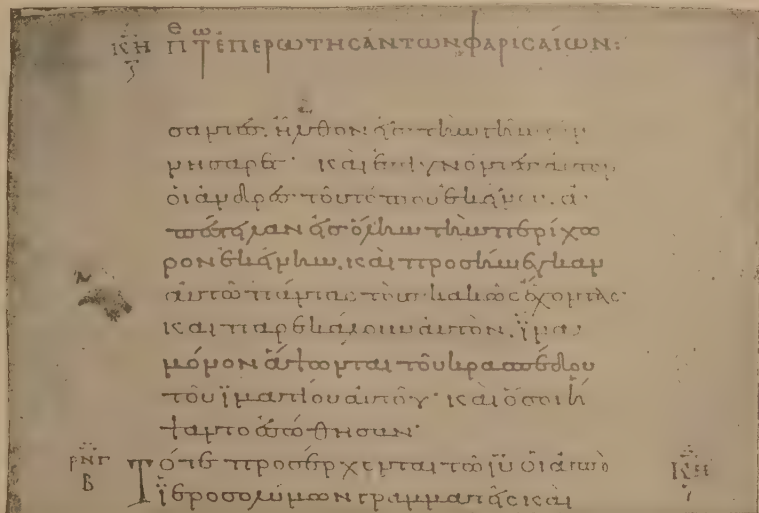 ΚΗ Π Τ ἐΠΕΡΩΤΗΣάΝΤΩΝ ΦΑΡΙΣΑίΩΝ:
σαντες. ἦλθον εἰς τὴν γῆν
νησαρέτ· καὶ ἐπιγνόντες αὐτὸν
οἱ ἄνδρες τοῦ τόπου ἐκείνου. ἀ
πέστειλαν εἰς ὅλην τὴν περίχω
ρον ἐκείνην. καὶ προσήνεγκαν
αὐτῷ πάντας τοὺς κακῶς ἔχοντας·
καὶ παρεκάλουν αὐτὸν. ἵνα
μόνον ἅψωνται τοῦ κρασπέδου
τοῦ ἱματίου αὐτοῦ· καὶ ὅσοι ἥ
ψαντο ἐσώθησαν·
ρνγ Β Τότε προσέρχονται τῷ ιυ οἱ ἀπὸ
ἱεροσολύμων γραμματεῖς καὶ